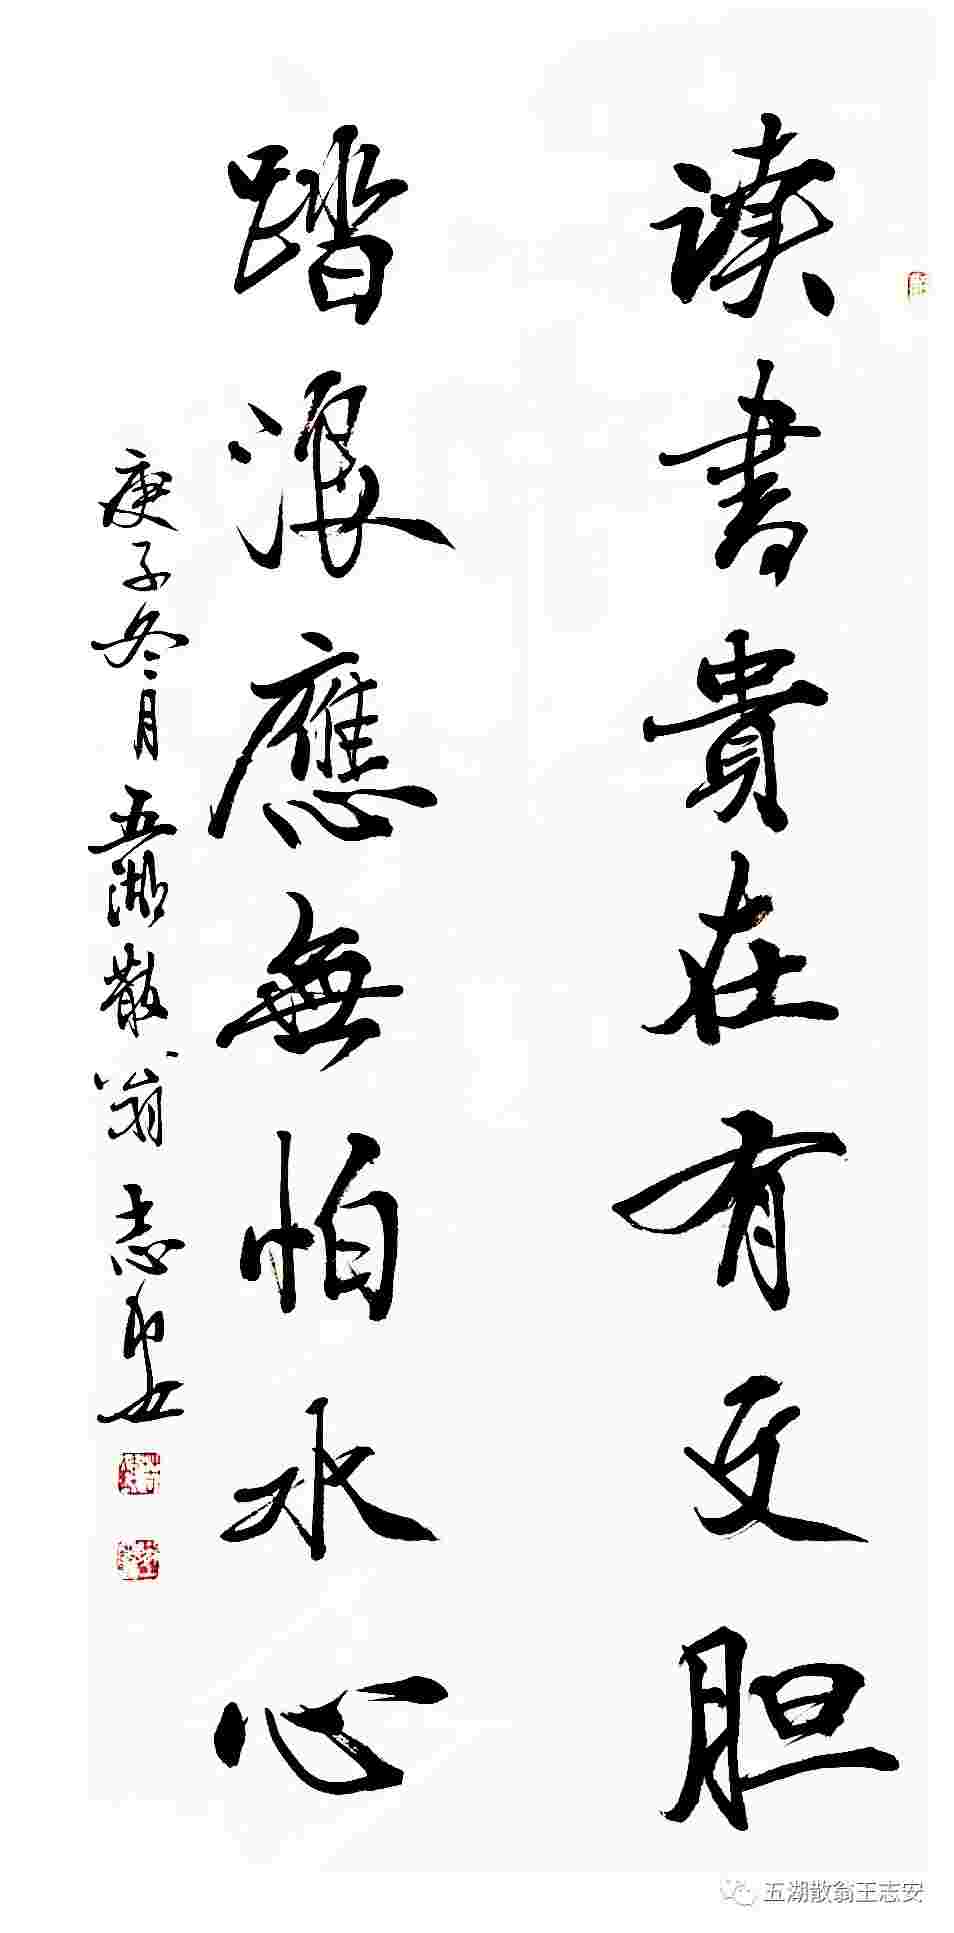 读書貴在有文胆
踏浪應無怕水心
庚子冬月五湖散翁志安
五湖散翁王志安